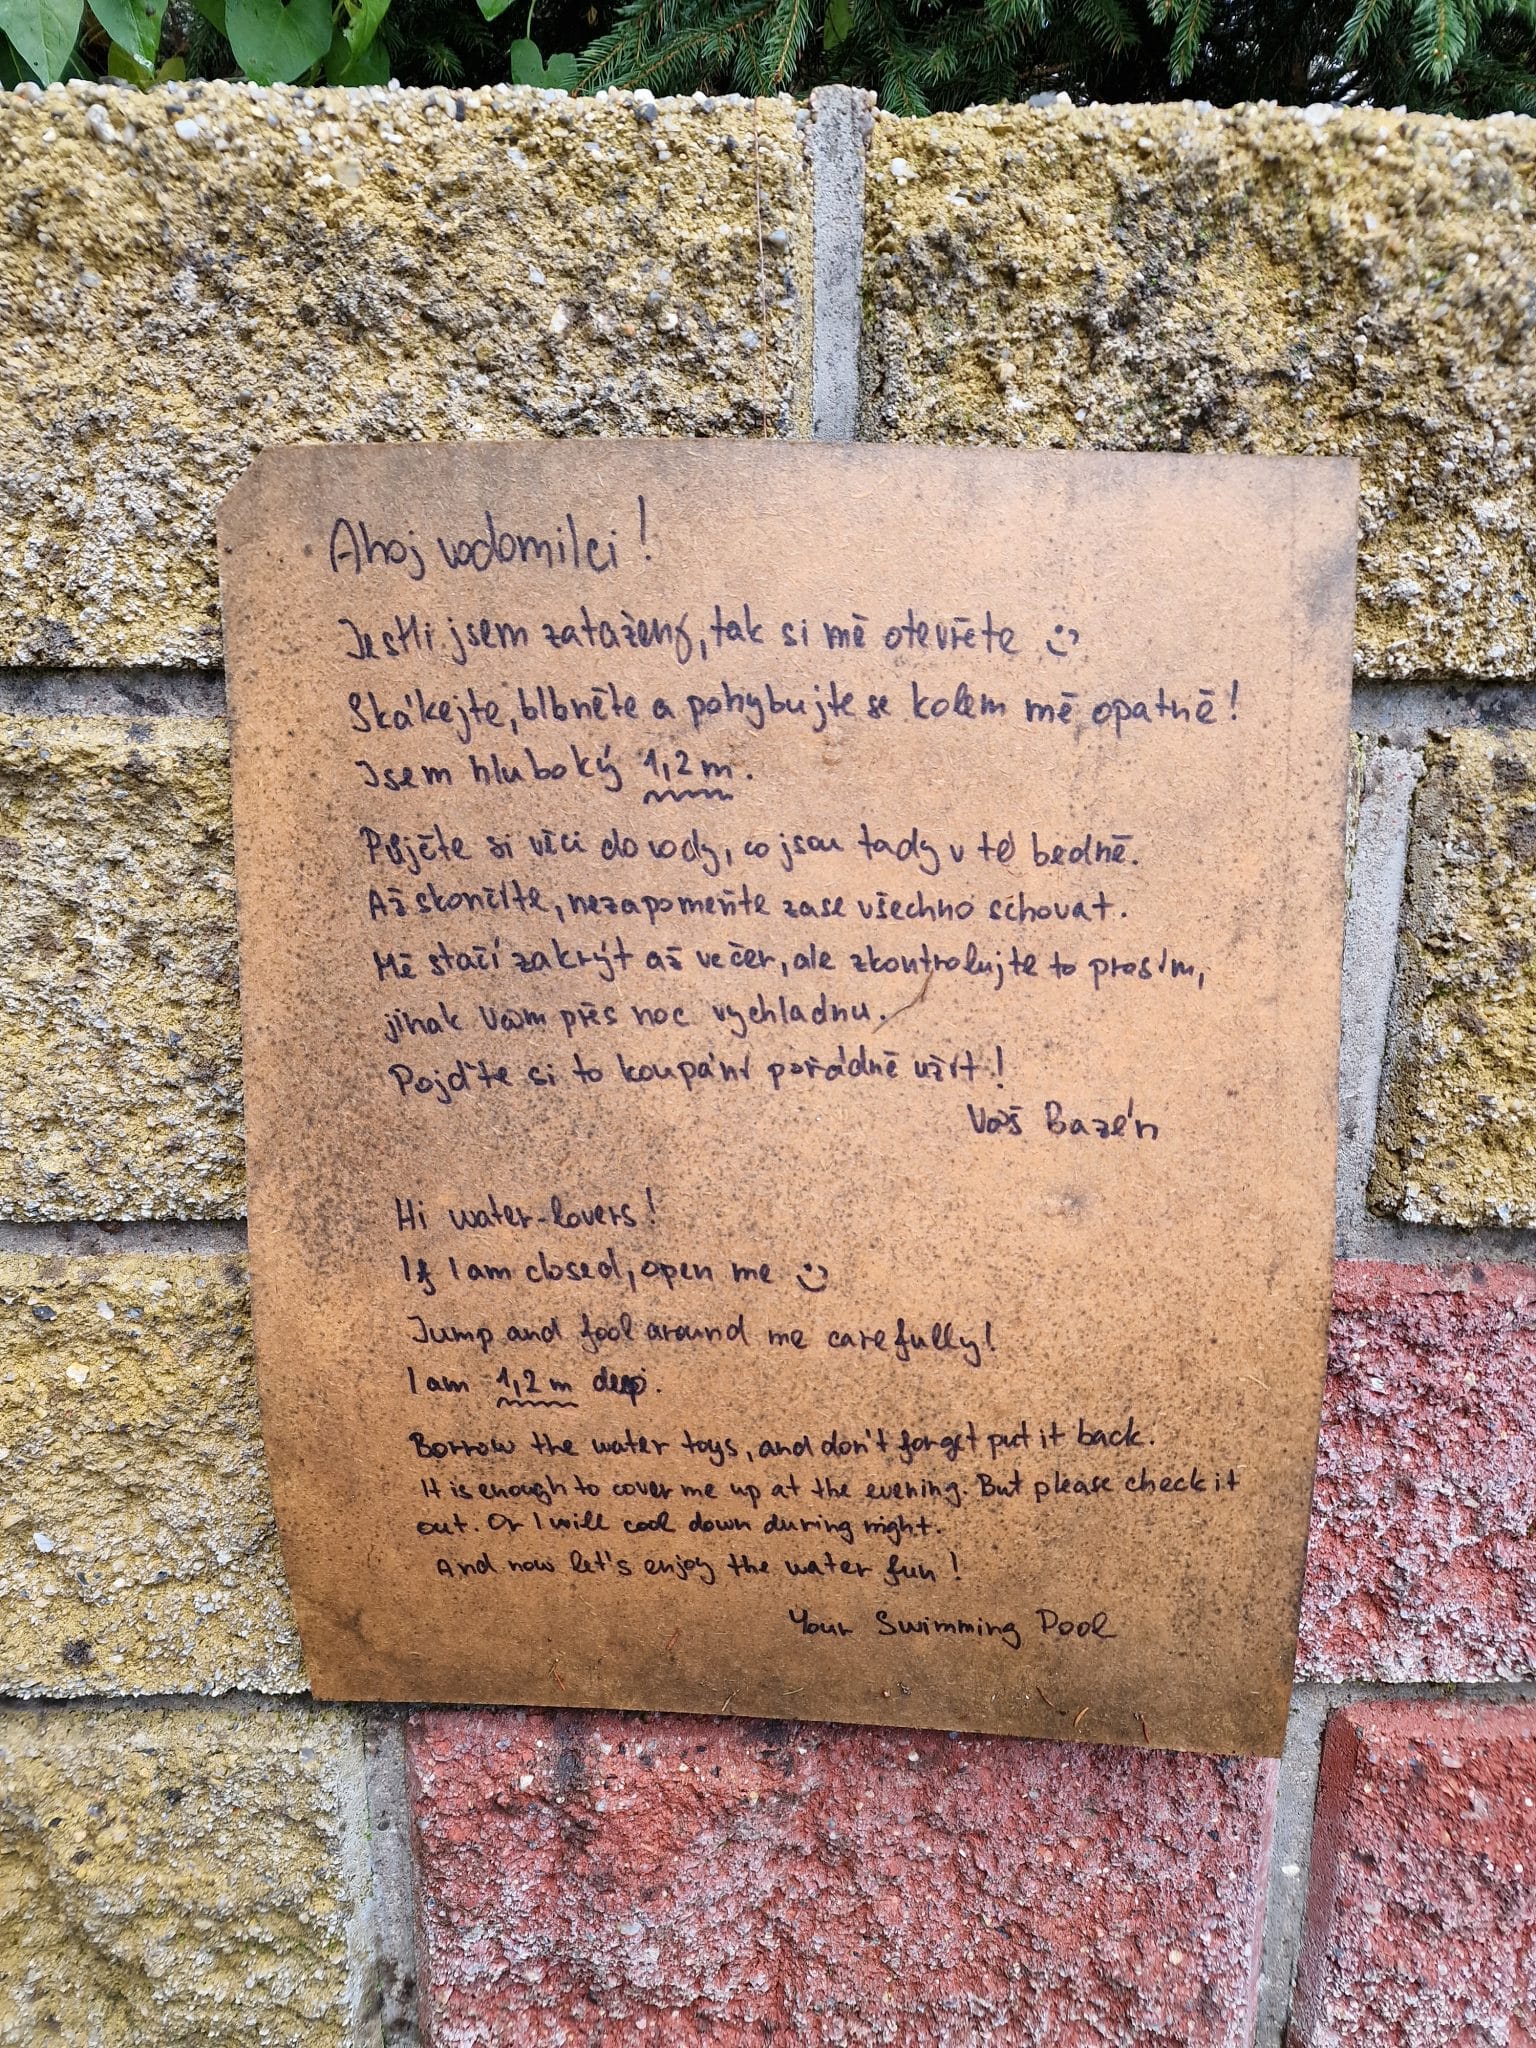 Ahoj vodomilci!
Jestli jsem zatažený, tak si mě otevřete :)
Skákejte, blbněte a pohybujte se kolem mě opatrně!
Jsem hluboký 1,2 m.
Půjčte si věci do vody, co jsou tady v té bedně.
Až skončíte, nezapomeňte zase všechno schovat.
Mě stačí zakrýt až večer, ale zkontrolujte to prosím,
jinak Vám přes noc vychladnu.
Pojďte si to koupání pořádně užít!
Váš Bazén
Hi water-lovers!
If I am closed, open me :)
Jump and fool around me carefully!
I am 1,2 m deep.
Borrow the water toys, and don't forget put it back.
It is enough to cover me up at the evening. But please check it
out. Or I will cool down during night.
And now let's enjoy the water fun!
Your Swimming Pool